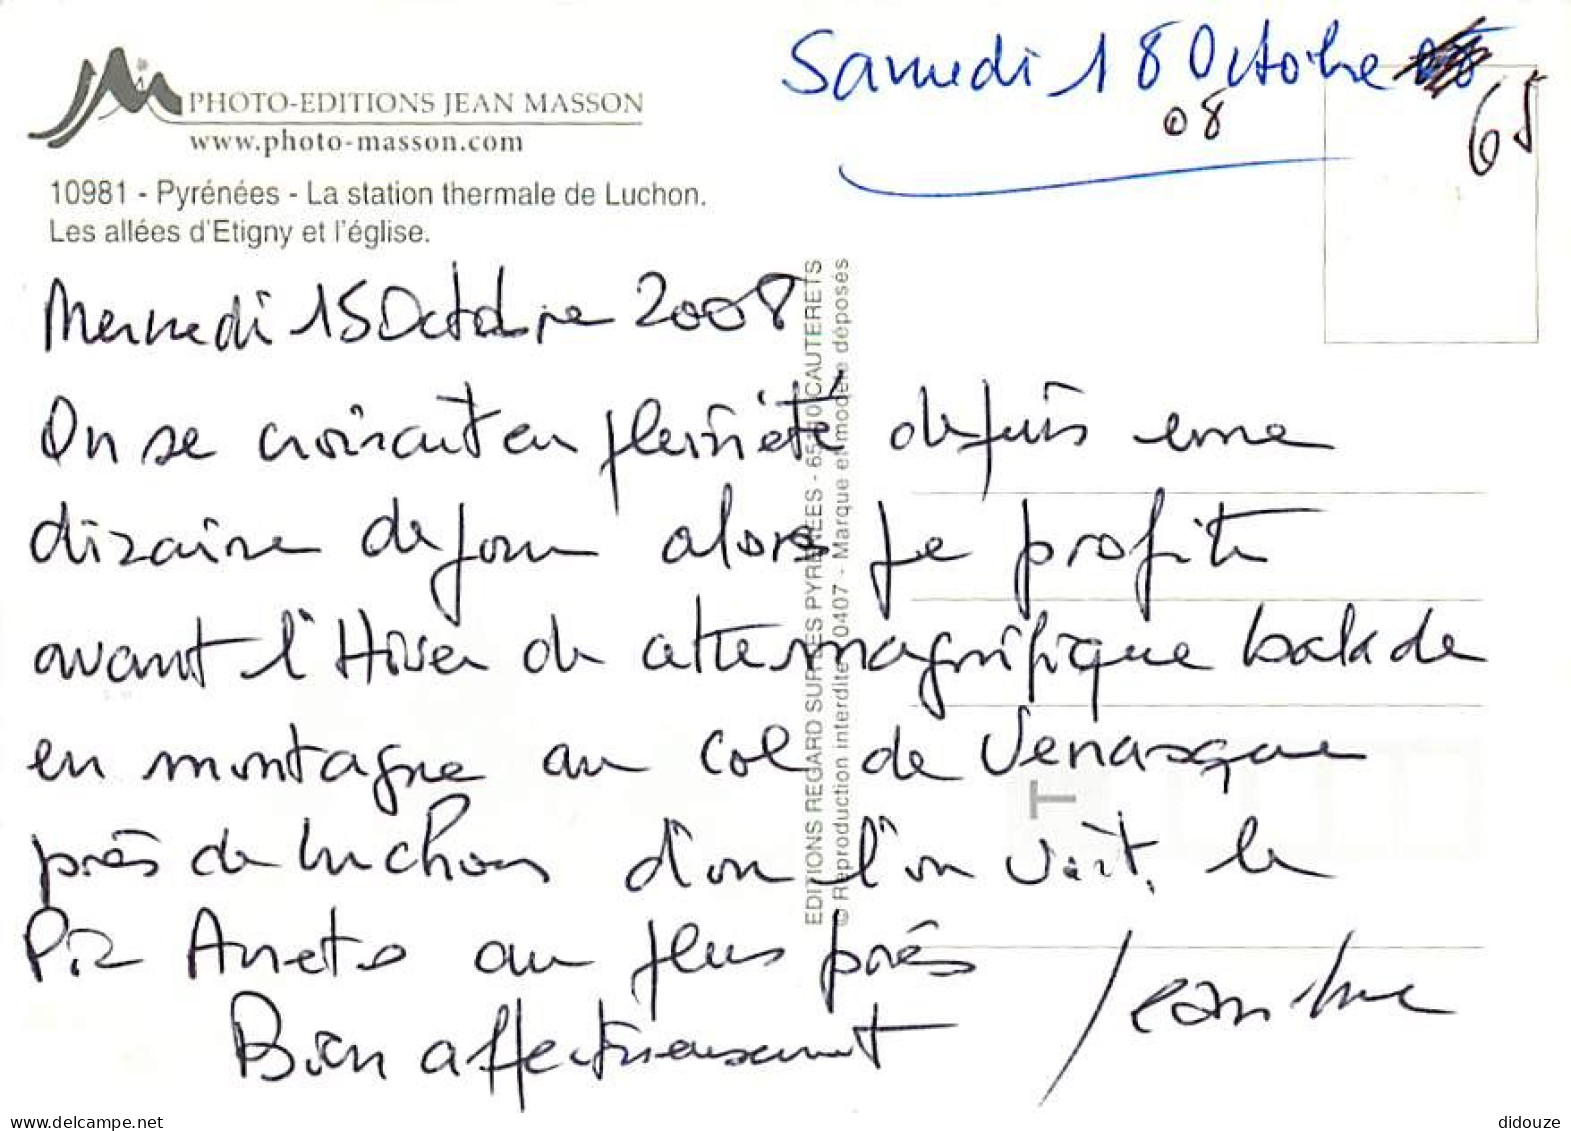 Samedi 18 Octobre
08
65
PHOTO-EDITIONS JEAN MASSON
www.photo-masson.com
10981 - Pyrénées - La station thermale de Luchon.
Les allées d'Etigny et l'église.
Mercredi 15 Octobre 2008
On se croirait en plein été depuis une
dizaine de jour alors je profite
avant l'Hiver de cette magnifique balade
en montagne au col de Venasque
près de Luchon d'ou l'on voit le
Pic Aneto au plus près
Bien affectueusement
Jean Luc
EDITIONS REGARD SUR LES PYRENEES - 65110 CAUTERETS
© Reproduction interdite 0407 - Marque et modèle déposés
T
www.delcampe.net
didouze